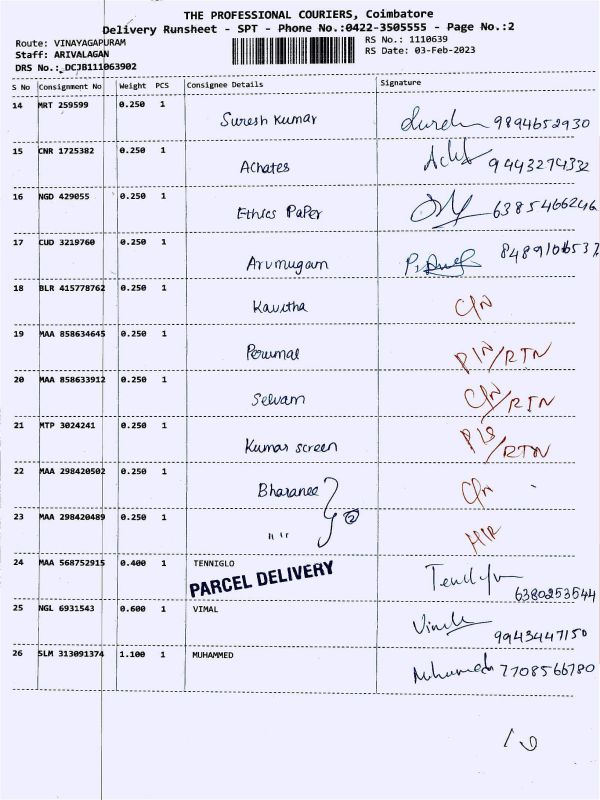 THE PROFESSIONAL COURIERS, Coimbatore
Delivery Runsheet - SPT - Phone No.:0422-3505555 - Page No.:2
Route: VINAYAGAPURAM RS No.: 1110639
Staff: ARIVALAGAN RS Date: 03-Feb-2023
DRS No.: DCJB111063902
S No Consignment No Weight PCS Consignee Details Signature
14 MRT 259599 0.250 1 Suresh Kumar 9894652930
15 CNR 1725382 0.250 1 Achates 9443274332
16 NGD 429055 0.250 1 Ethics Paper 6385466246
17 CUD 3219760 0.250 1 Arumugam
18 BLR 415778762 0.250 1 Kavitha
19 MAA 858634645 0.250 1 Perumal /RTN
20 MAA 858633912 0.250 1 Selvam /RTN
21 MTP 3024241 0.250 1 Kumar screen /RTN
22 MAA 298420502 0.250 1 Bharanee
23 MAA 298420489 0.250 1 " "
24 MAA 568752915 0.400 1 TENNIGLO 6380253544
PARCEL DELIVERY
25 NGL 6931543 0.600 1 VIMAL Vimal 9943447150
26 SLM 313091374 1.100 1 MUHAMMED Muhamed 7708566780